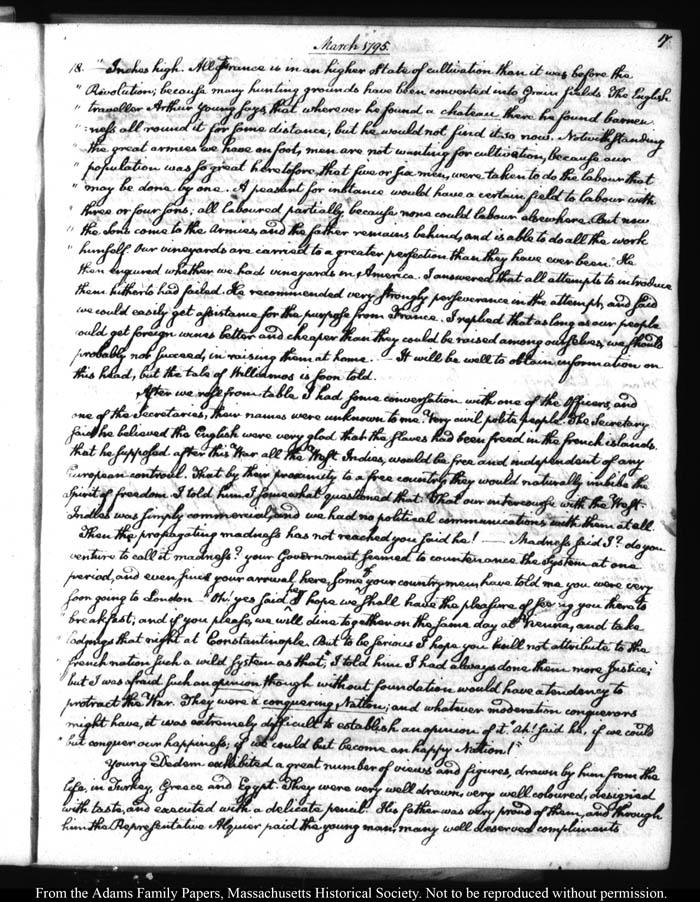 17
March 1795.
18. " Inches high. All France is in an higher State of cultivation than it was before the
" Revolution; because many hunting grounds have been converted into Grain fields. The English
" traveller Arthur Young says, that wherever he found a chateau there he found barren-
" ness all round it for some distance; but he would not find it so now. Notwithstanding
" the great armies we have on foot, men are not wanting for cultivation, because our
" population was so great heretofore, that five or six men, were taken to do the labour that
" may be done by one. A peasant for instance would have a certain field to labour with
" three or four sons; all laboured partially because none could labour elsewhere. But now
" the Sons come to the Armies, and the father remains behind, and is able to do all the work
" himself. Our vineyards are carried to a greater perfection than they have ever been." He
then enquired whether we had vineyards in America. I answered that all attempts to introduce
them hitherto had failed. He recommended very strongly perseverance in the attempt, and said
we could easily get assistance for the purpose from France. I replied that as long as our people
could get foreign wines better and cheaper than they could be raised among ourselves, we should
probably not succeed, in raising them at home. — It will be well to obtain information on
this head, but the tale of Williamos is soon told.
After we rose from table I had some conversation with one of the Officers, and
one of the Secretaries; their names were unknown to me. Very civil polite people. The Secretary
said he believed the English were very glad that the slaves had been freed in the french islands.
that he supposed after this War all the West Indies, would be free and independent of any
European controul. That by their proximity to a free country, they would naturally imbibe the
Spirit of freedom. I told him I somewhat questioned that. That our intercourse with the West-
Indies was simply commercial, and we had no political communications with them at all.
Then the propagating madness has not reached you said he! — Madness said I? do you
venture to call it madness? your Government seemed to countenance the system at one
period, and even since your arrival here, some of your countrymen have told me you were very
soon going to London — "Oh! yes said he, I hope we shall have the pleasure of seeing you there to
" breakfast; and if you please, we will dine together on the same day at Vienna, and take
" Lodgings that night at Constantinople. But to be serious I hope you will not attribute to the
" french nation such a wild system as that." I told him I had always done them more Justice;
but I was afraid such an opinion, though without foundation would have a tendency to
protract the War. They were a conquering Nation; and whatever moderation conquerors
might have, it was extremely difficult to establish an opinion of it. "Ah! said he, if we could
" but conquer our happiness; if we could but become an happy Nation!"
Young Dedem exhibited a great number of views and figures, drawn by him from the
life, in Turkey, Greece and Egypt. They were very well drawn, very well coloured, designed
with taste, and executed with a delicate pencil. His father was very proud of them, and through
him the Representative Alquier paid the young man, many well deserved compliments
From the Adams Family Papers, Massachusetts Historical Society. Not to be reproduced without permission.